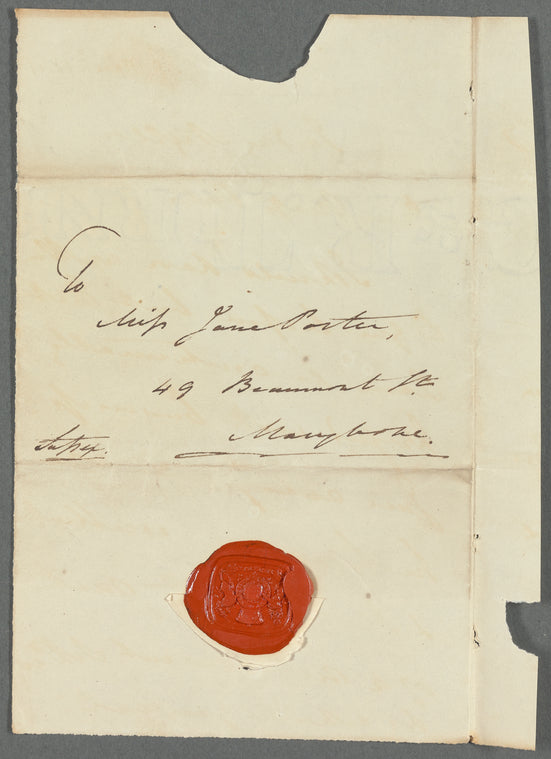 To
Miss Jane Porter,
49 Beaumont St.
Marylbone.
Sussex.